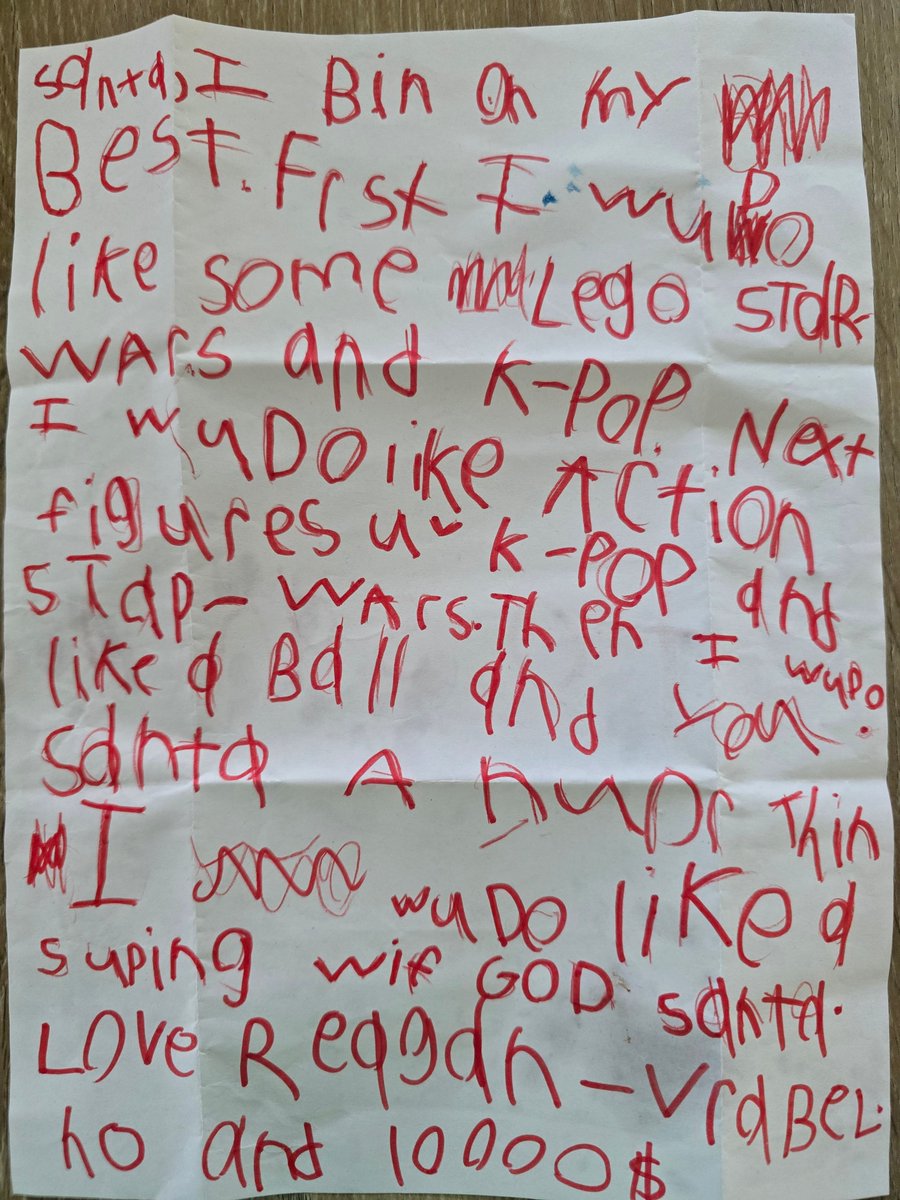 santa, I Bin On my
Best. Frst I wuDo
like some Lego STaR-
WArs and K-POP. Next
I wuDo like ACtion
figures uv K-POP and
STap-WArs. Then I wuDo
like a Ball and you
santa A nuDr Thin
I wuDo like a
suping wif GOD santa.
LOVe Reagan-VraBeL.
ho and 10000$